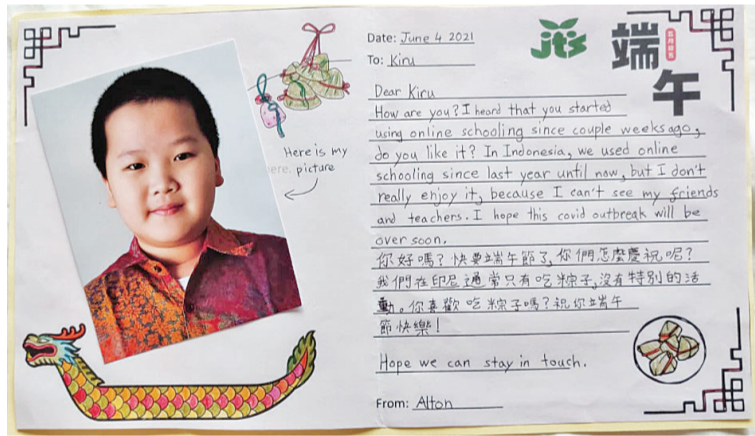 Date: June 4 2021
jts
端
午
To: Kiru
Dear Kiru
How are you? I heard that you started
using online schooling since couple weeks ago,
do you like it? In Indonesia, we used online
schooling since last year until now, but I don't
really enjoy it, because I can't see my friends
and teachers. I hope this covid outbreak will be
over soon.
你好嗎？快要端午節了，你們怎麼慶祝呢？
我們在印尼通常只有吃粽子，沒有特別的活
動。你喜歡吃粽子嗎？祝你端午
節快樂！
Hope we can stay in touch.
From: Alton
Here is my
ere. picture